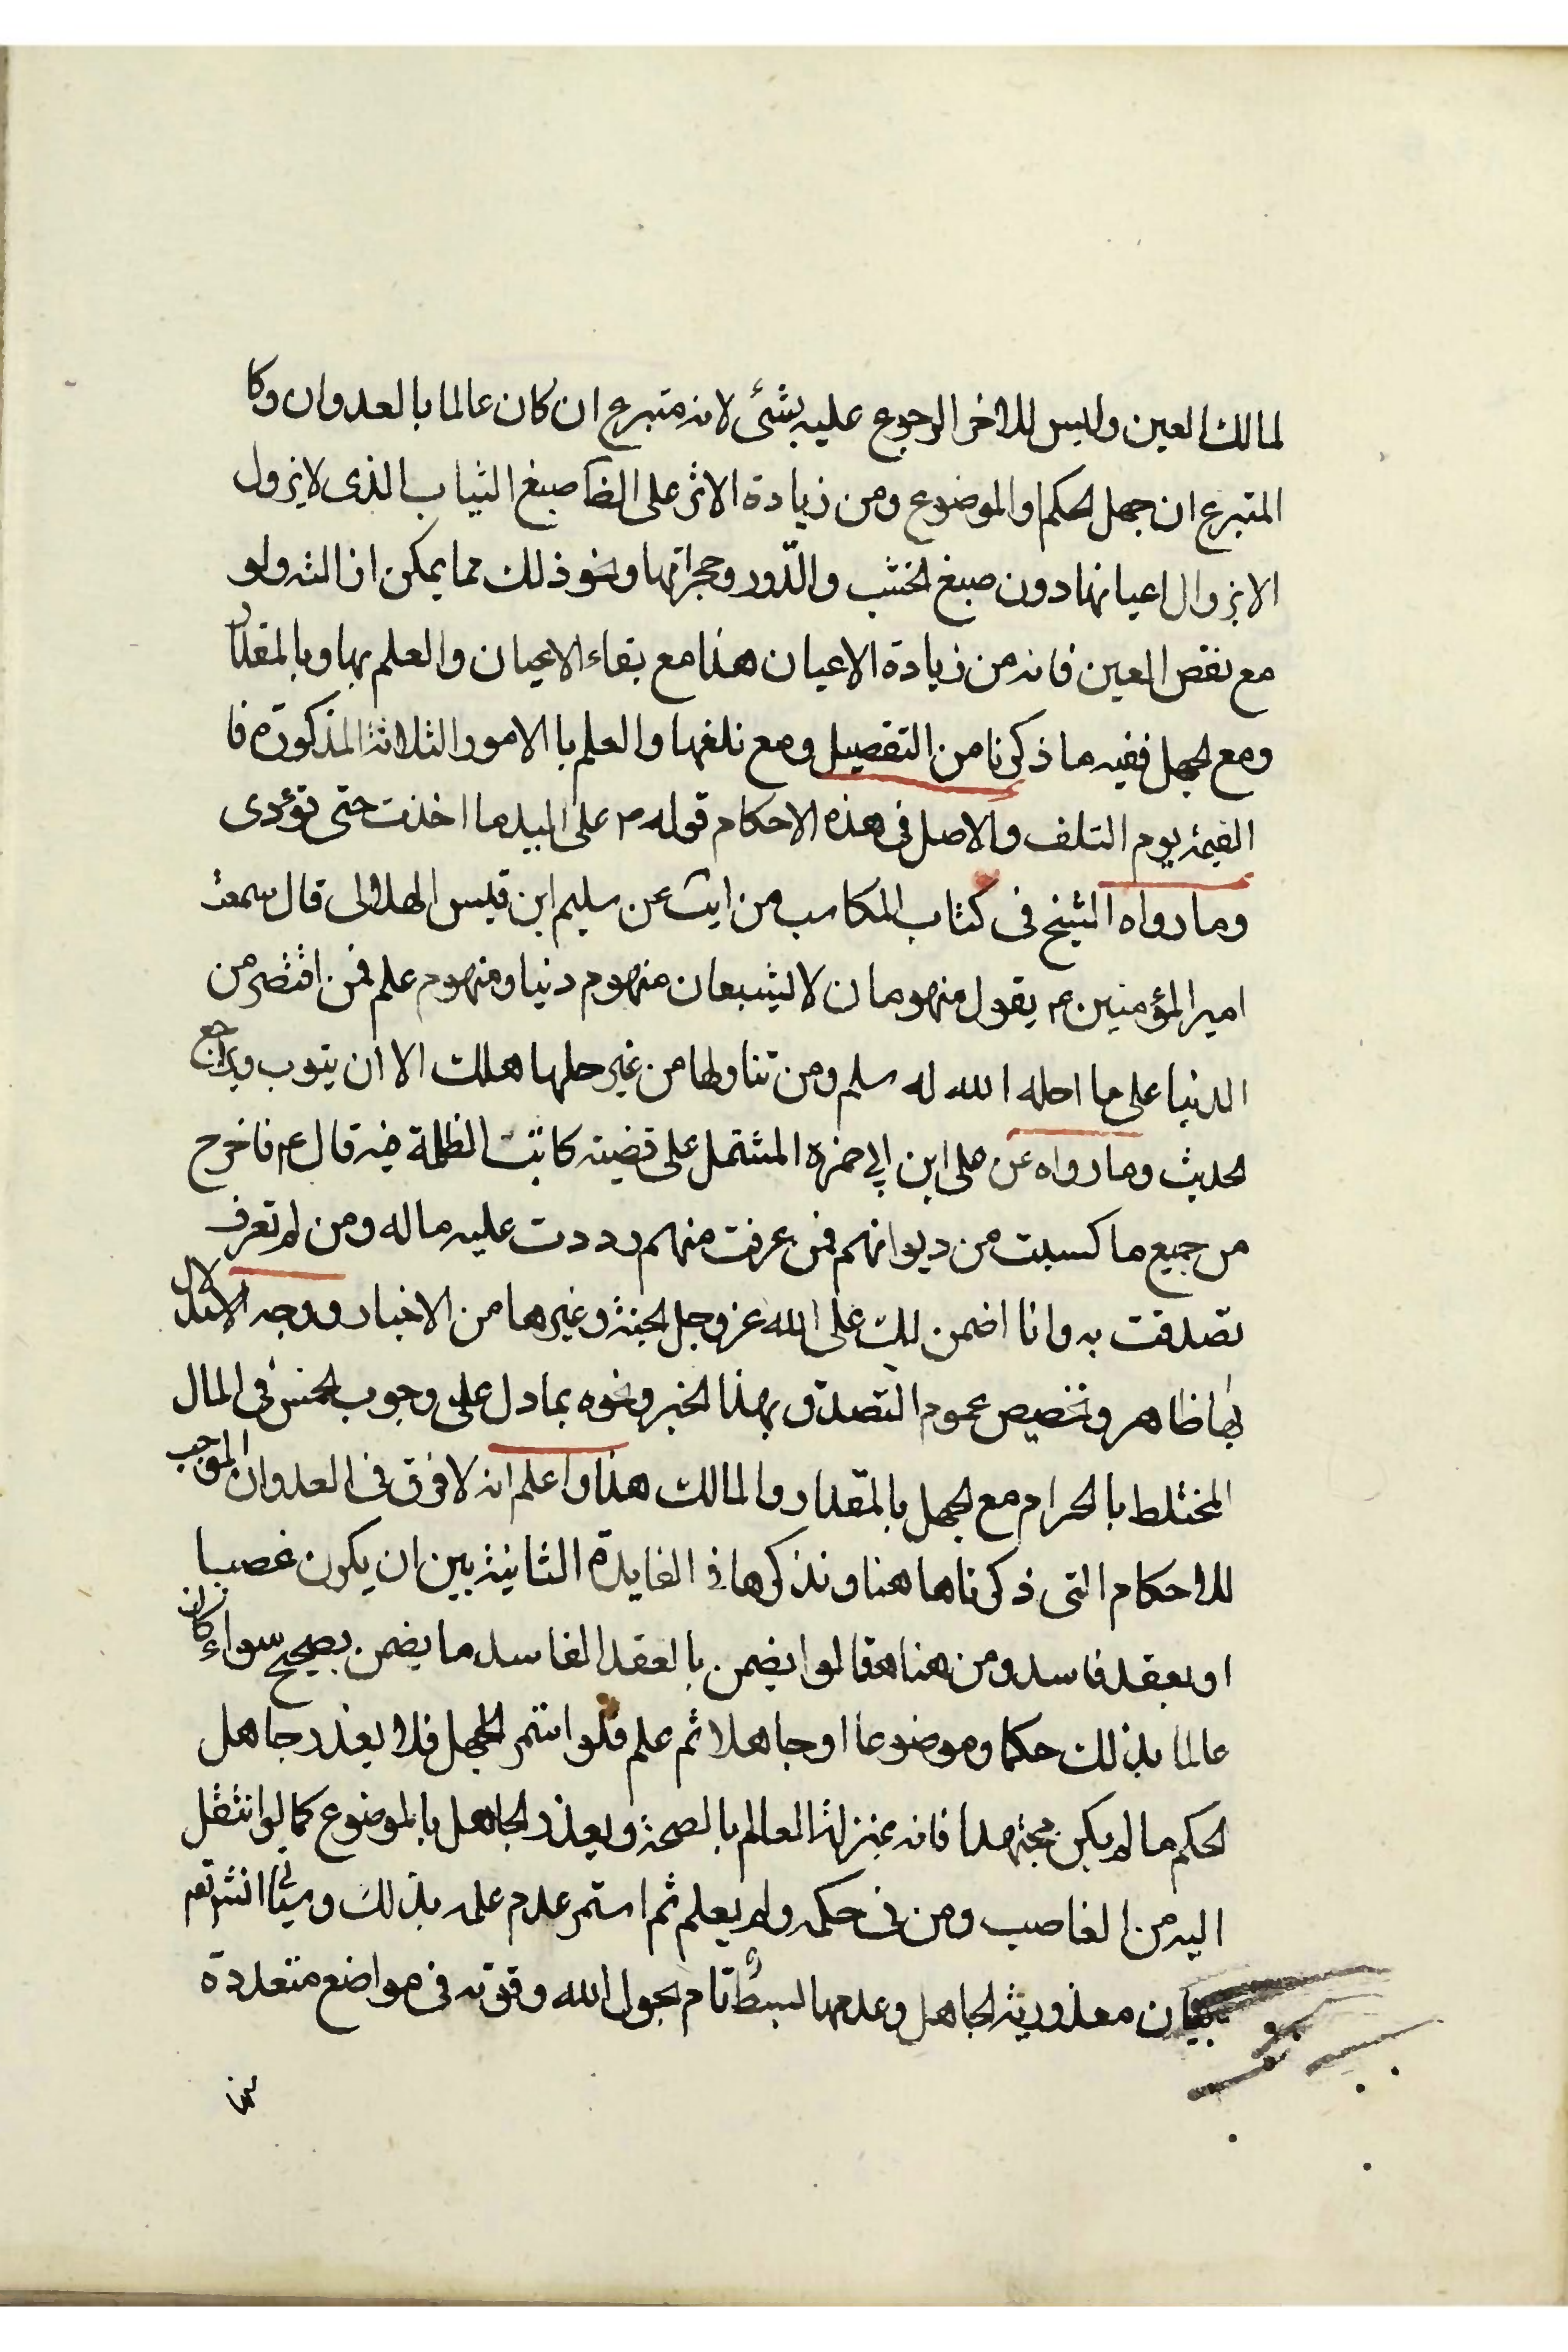 لمالك العين وليس للاخر الرجوع عليه بشئ لانه متبرع ان كان عالما بالعدوان وكا
المتبرع ان جهل الحكم او الموضوع ومن زيادة الاثر على الظا صبغ الثياب الذى لا يزول
الا بزوال اعيانها دون صبغ الخشب والدّور وحجراتها ونحو ذلك مما يمكن ازالته ولو
مع نقص العين فانه من زيادة الاعيان هذا مع بقاء الاعيان والعلم بها وبالمقدار
ومع الجهل ففيه ما ذكرنا من التفصيل ومع تلفها والعلم بالامور الثلاثة المذكورة فا
القيمة يوم التلف والاصل فى هذه الاحكام قوله ص على اليد ما اخذت حتى تؤدى
وما رواه الشيخ فى كتاب المكاسب من عن سليم ابن قيس الهلالى قال سمعت
امير المؤمنين ع يقول منهومان لا يشبعان منهوم دنيا ومنهوم علم فمن اقتصر من
الدنيا على ما احله الله له سلم ومن تناولها من غير حلها هلك الا ان يتوب ويراجع
الحديث وما رواه عن على ابن ابي حمزه المشتمل على قضية كاتب الظلمة فيه قال ع فاخرج
من جميع ما كسبت من ديوانهم فمن عرفت منهم رددت عليه ماله ومن لم تعرف
تصدقت به وانا اضمن لك على الله عز وجل الجنة وغيرها من الاخبار ووجه الاستدلال
بها ظاهر وتخصيص عموم التصدق بهذا الخبر ونحوه بما دل على وجوب الخمس فى المال
المختلط بالحرام مع الجهل بالمقدار والمالك هذا واعلم انه لا فرق فى العدوان الموجب
للاحكام التى ذكرناها هنا ونذكرها فى الفايدة الثانية بين ان يكون غصبا
او بعقد فاسد ومن هنا قالوا يضمن بالعقد الفاسد ما يضمن بصحيح سواء كان
عالما بذلك حكما وموضوعا او جاهلا ثم علم فلو استمر الجهل فلا يعذر جاهل
الحكم ما لم يكن مجتهدا فانه بمنزلة العالم بالصحة ويعذر الجاهل بالموضوع كما لو انتقل
اليه من الغاصب ومن فى حكمه ولم يعلم ثم استمر عدم علمه بذلك وسياتى انش تعم
بيان معذورية الجاهل وعدمها ببسط تام بحول الله وقوته فى مواضع متعددة